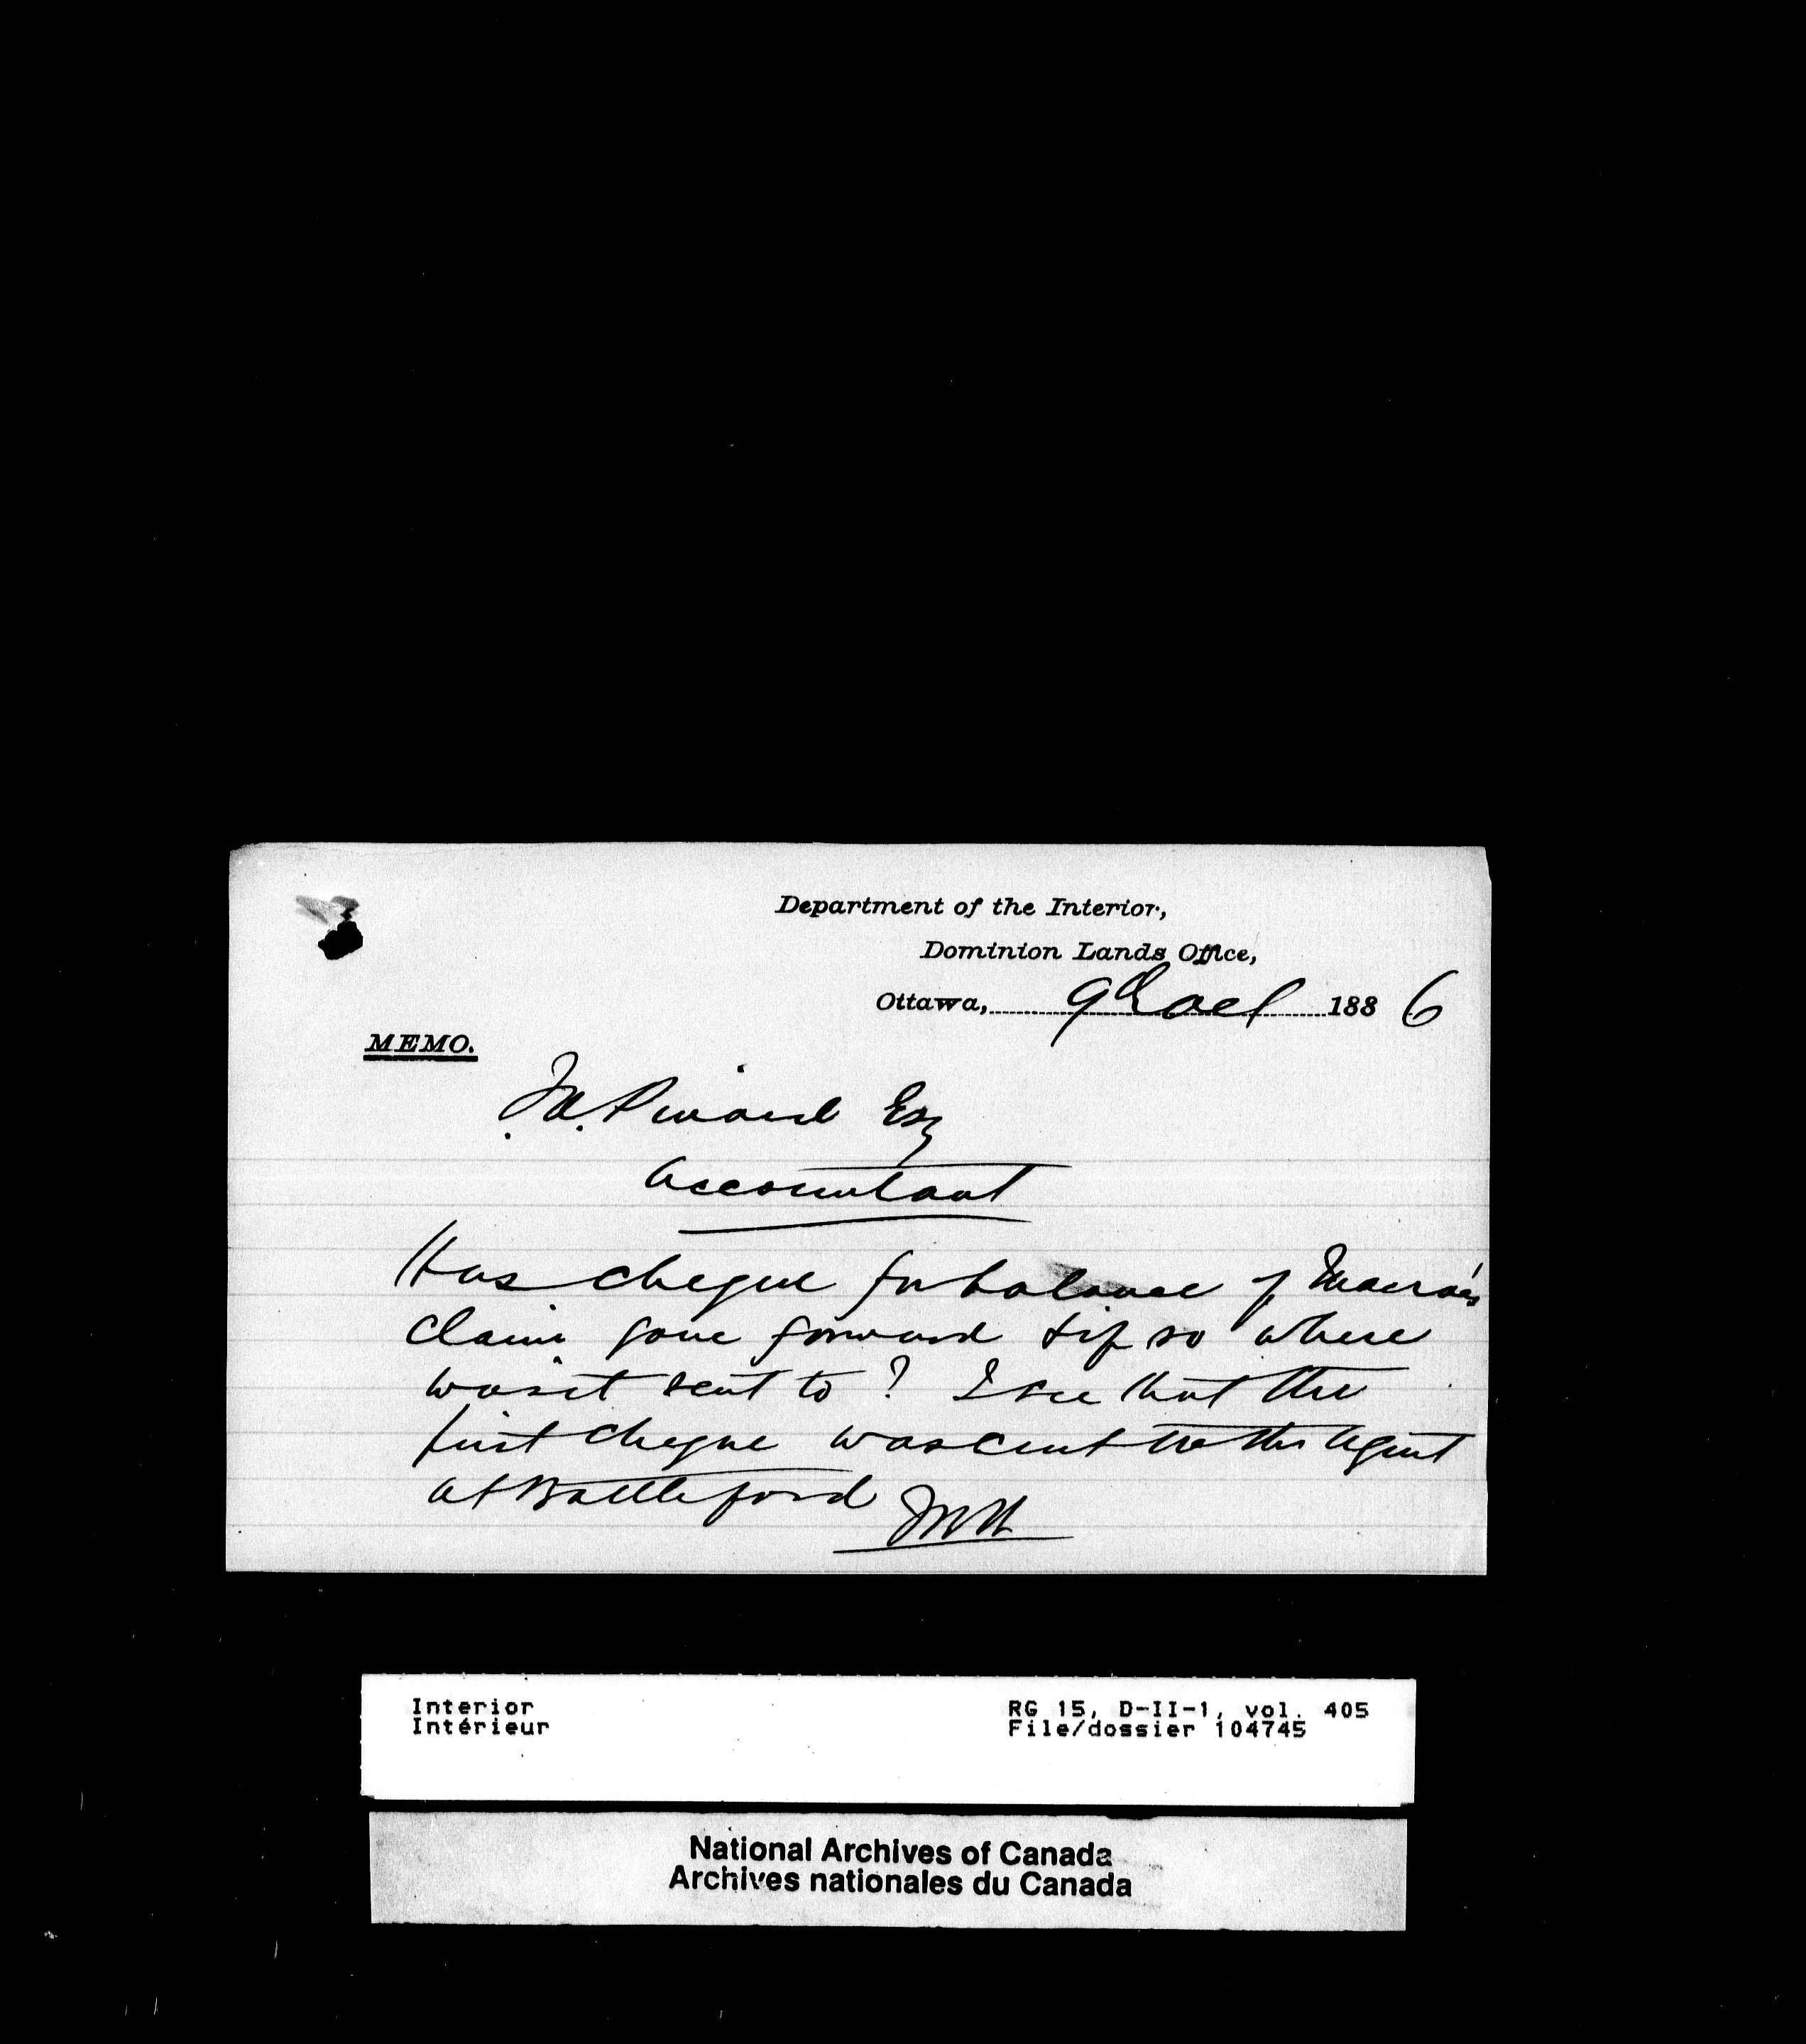 Department of the Interior,
Dominion Lands Office,
Ottawa, 9th Oct 1886
MEMO.
J.A. Pinard Esq
Accountant
Has cheque for balance of Macrae's
claim gone forward & if so where
was it sent to? I see that the
first cheque was sent to the Agent
at Battleford
Interior
Intérieur
RG 15, D-II-1, vol. 405
File/dossier 104745
National Archives of Canada
Archives nationales du Canada